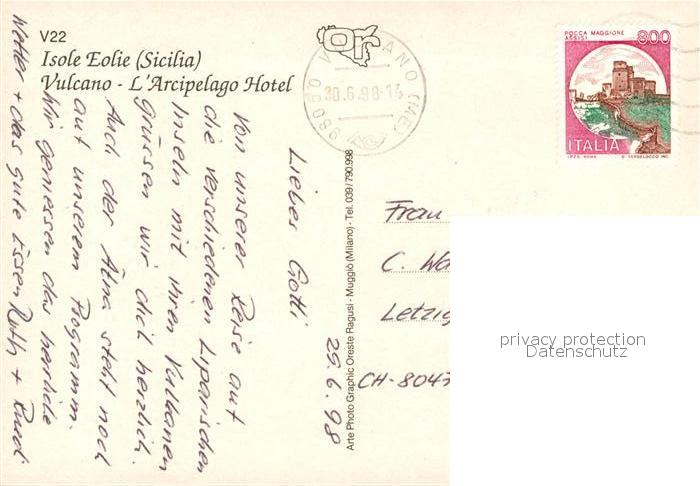 V22
Isole Eolie (Sicilia)
Vulcano - L'Arcipelago Hotel
98050 VULCANO (ME)
30.6.98-14
ROCCA MAGGIORE
ASSISI
800
ITALIA
I.P.Z.S. ROMA
Arte Photo Graphic Oreste Ragusi - Muggiò (Milano) - Tel. 039/790.998
29.6.98
Liebes Gotti
Von unserer Reise auf
die verschiedenen Liparischen
Inseln mit ihren Vulkanen
grüssen wir dich herzlich.
Auch der Ätna steht noch
auf unserem Programm.
Wir geniessen das herrliche
Wetter + das gute Essen Ruth + Ruedi
Frau
C. Wa
Letzig
CH-8047
privacy protection
Datenschutz